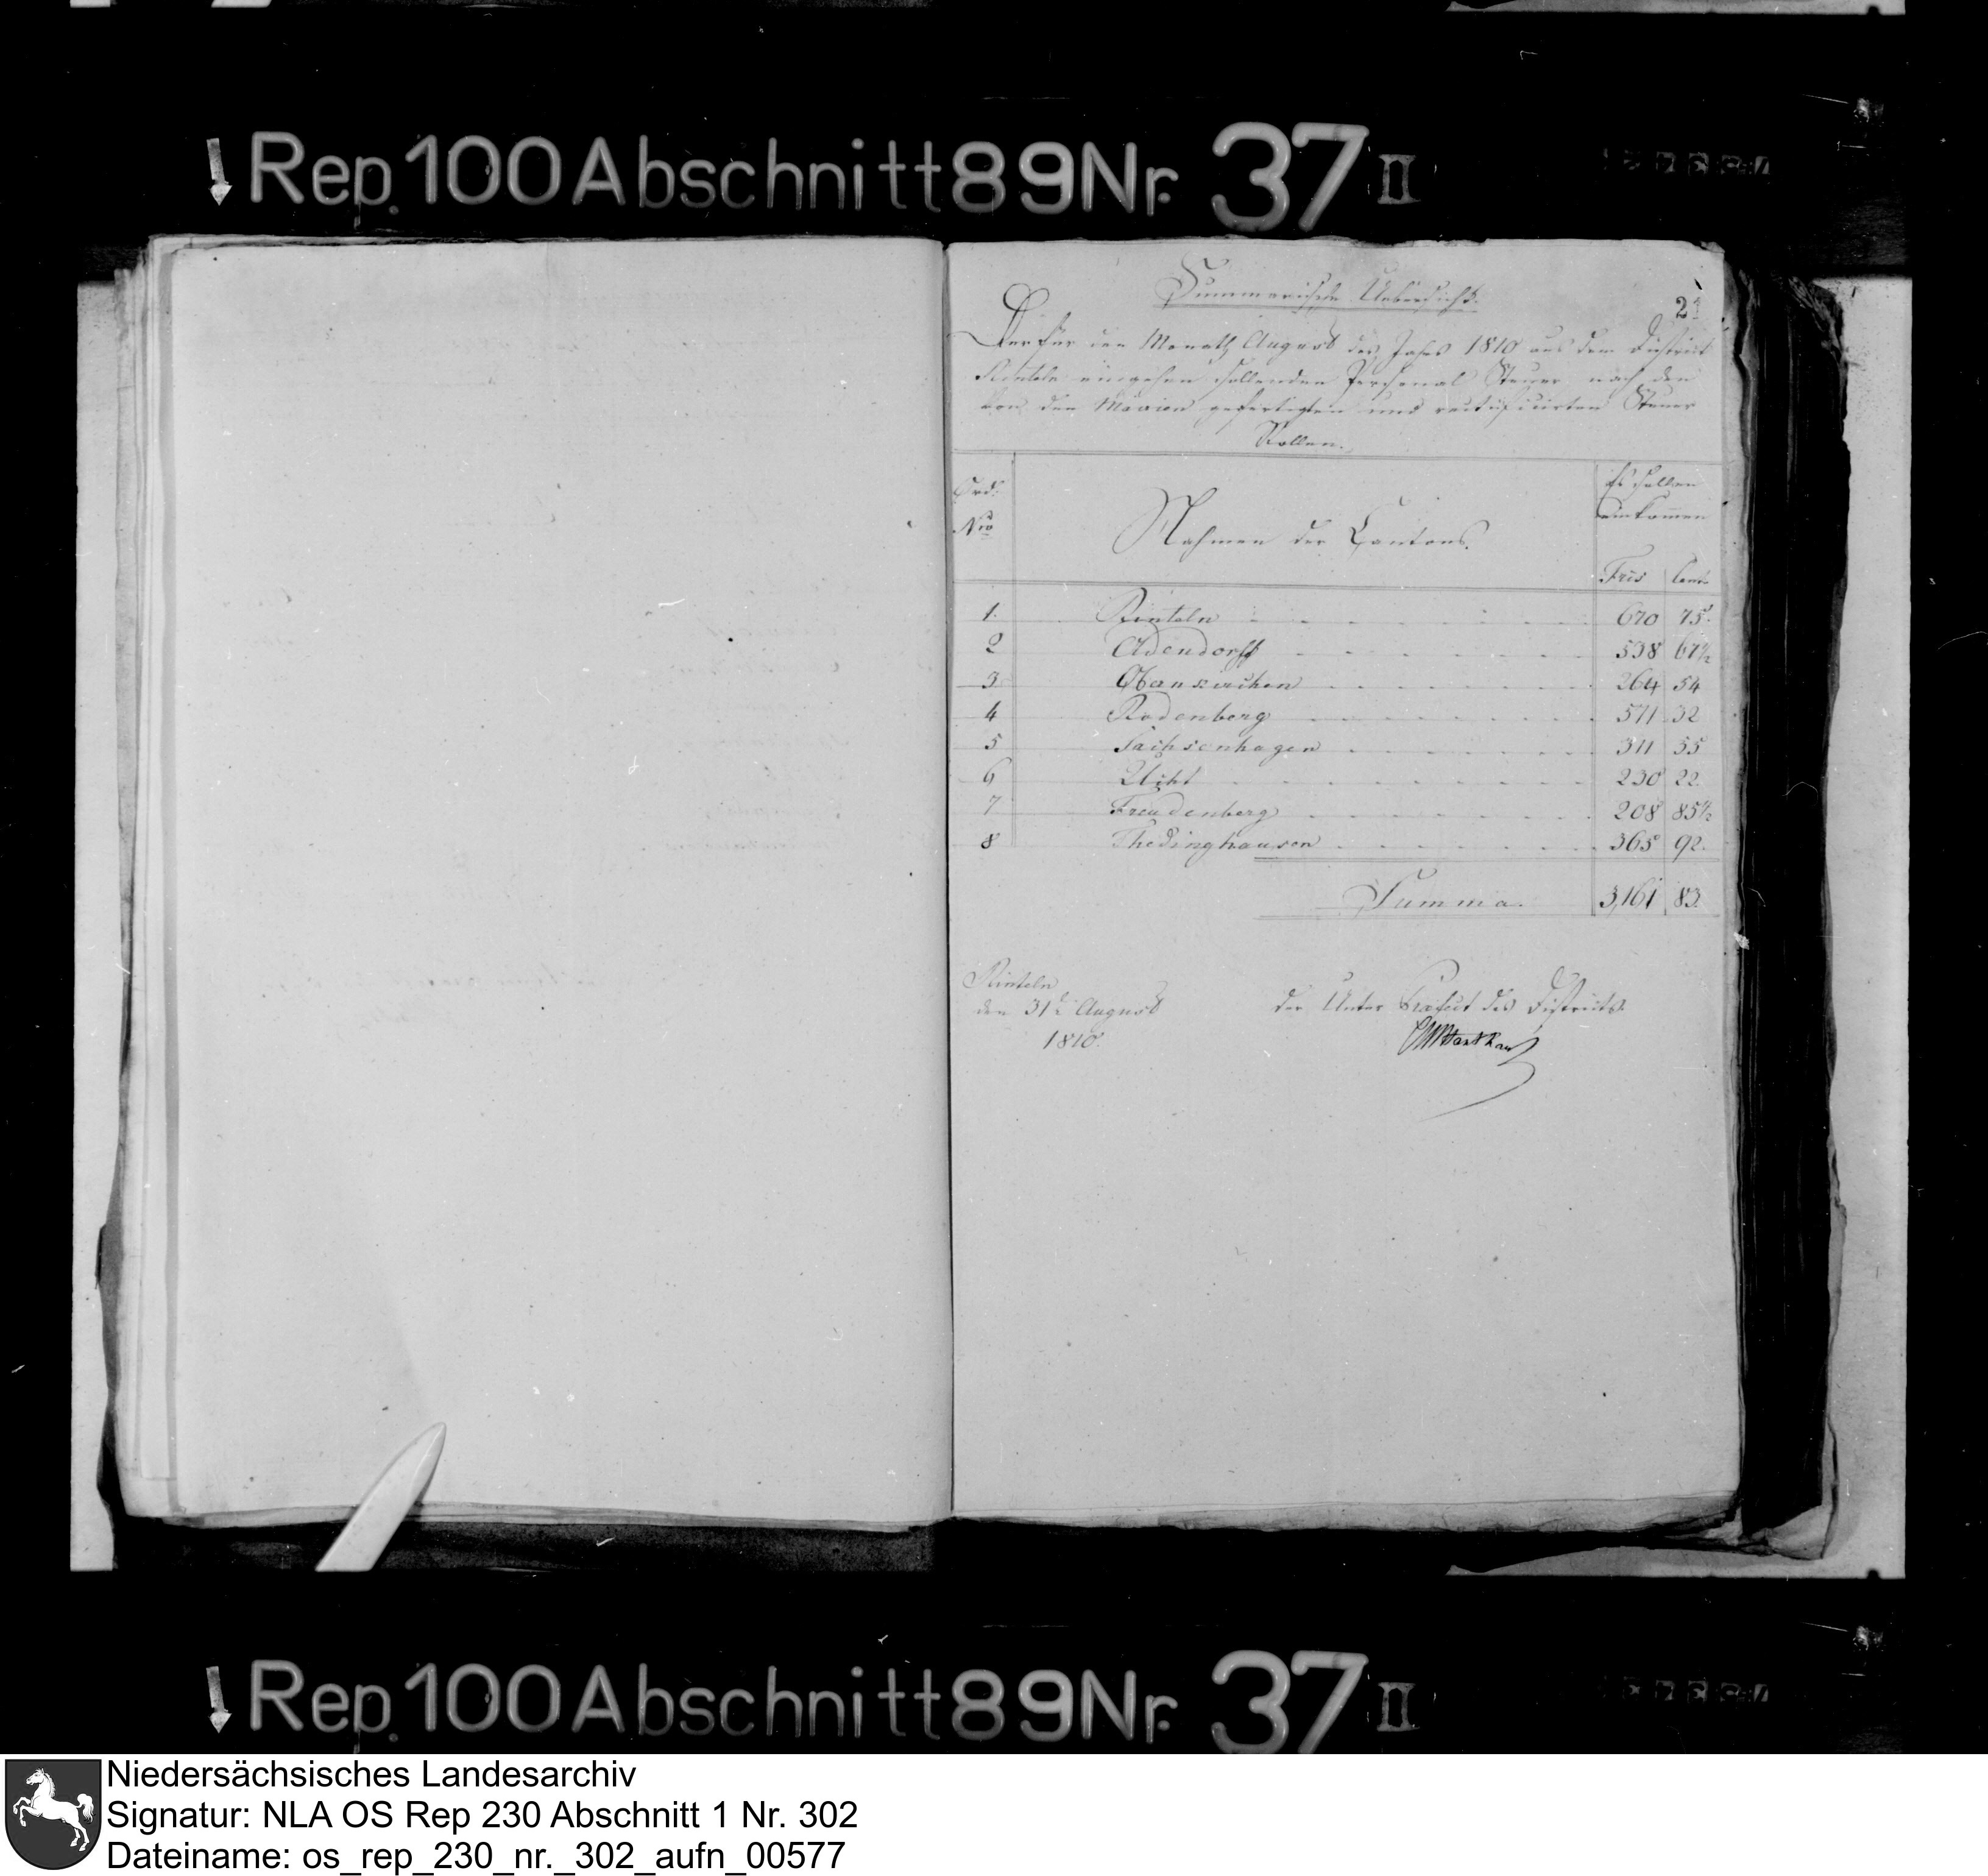 Rep. 100 Abschnitt 89 Nr. 37 II
Summarische Uebersicht.
21
Der für den Monath August des Jahrs 1810 aus dem District
Rinteln eingehen sollenden Personal Steuer nach den
von den Mairien gefertigten und rectificirten Steuer
Rollen.
Ord. Nro
Nahmen der Cantons.
Es sollen einkommen
Frcs Cent.
1. Rinteln 670 75.
2 Oldendorff 538 67½
3 Obernkirchen 264 54
4 Rodenberg 571 32
5 Sachsenhagen 311 55
6 Ucht 230 22.
7 Freudenberg 208 85½
8 Thedinghausen 365 92.
Summa. 3,161 83.
Rinteln
den 31t August
1810.
der Unter Praefect des Districts.
Rep. 100 Abschnitt 89 Nr. 37 II
Niedersächsisches Landesarchiv
Signatur: NLA OS Rep 230 Abschnitt 1 Nr. 302
Dateiname: os_rep_230_nr._302_aufn_00577